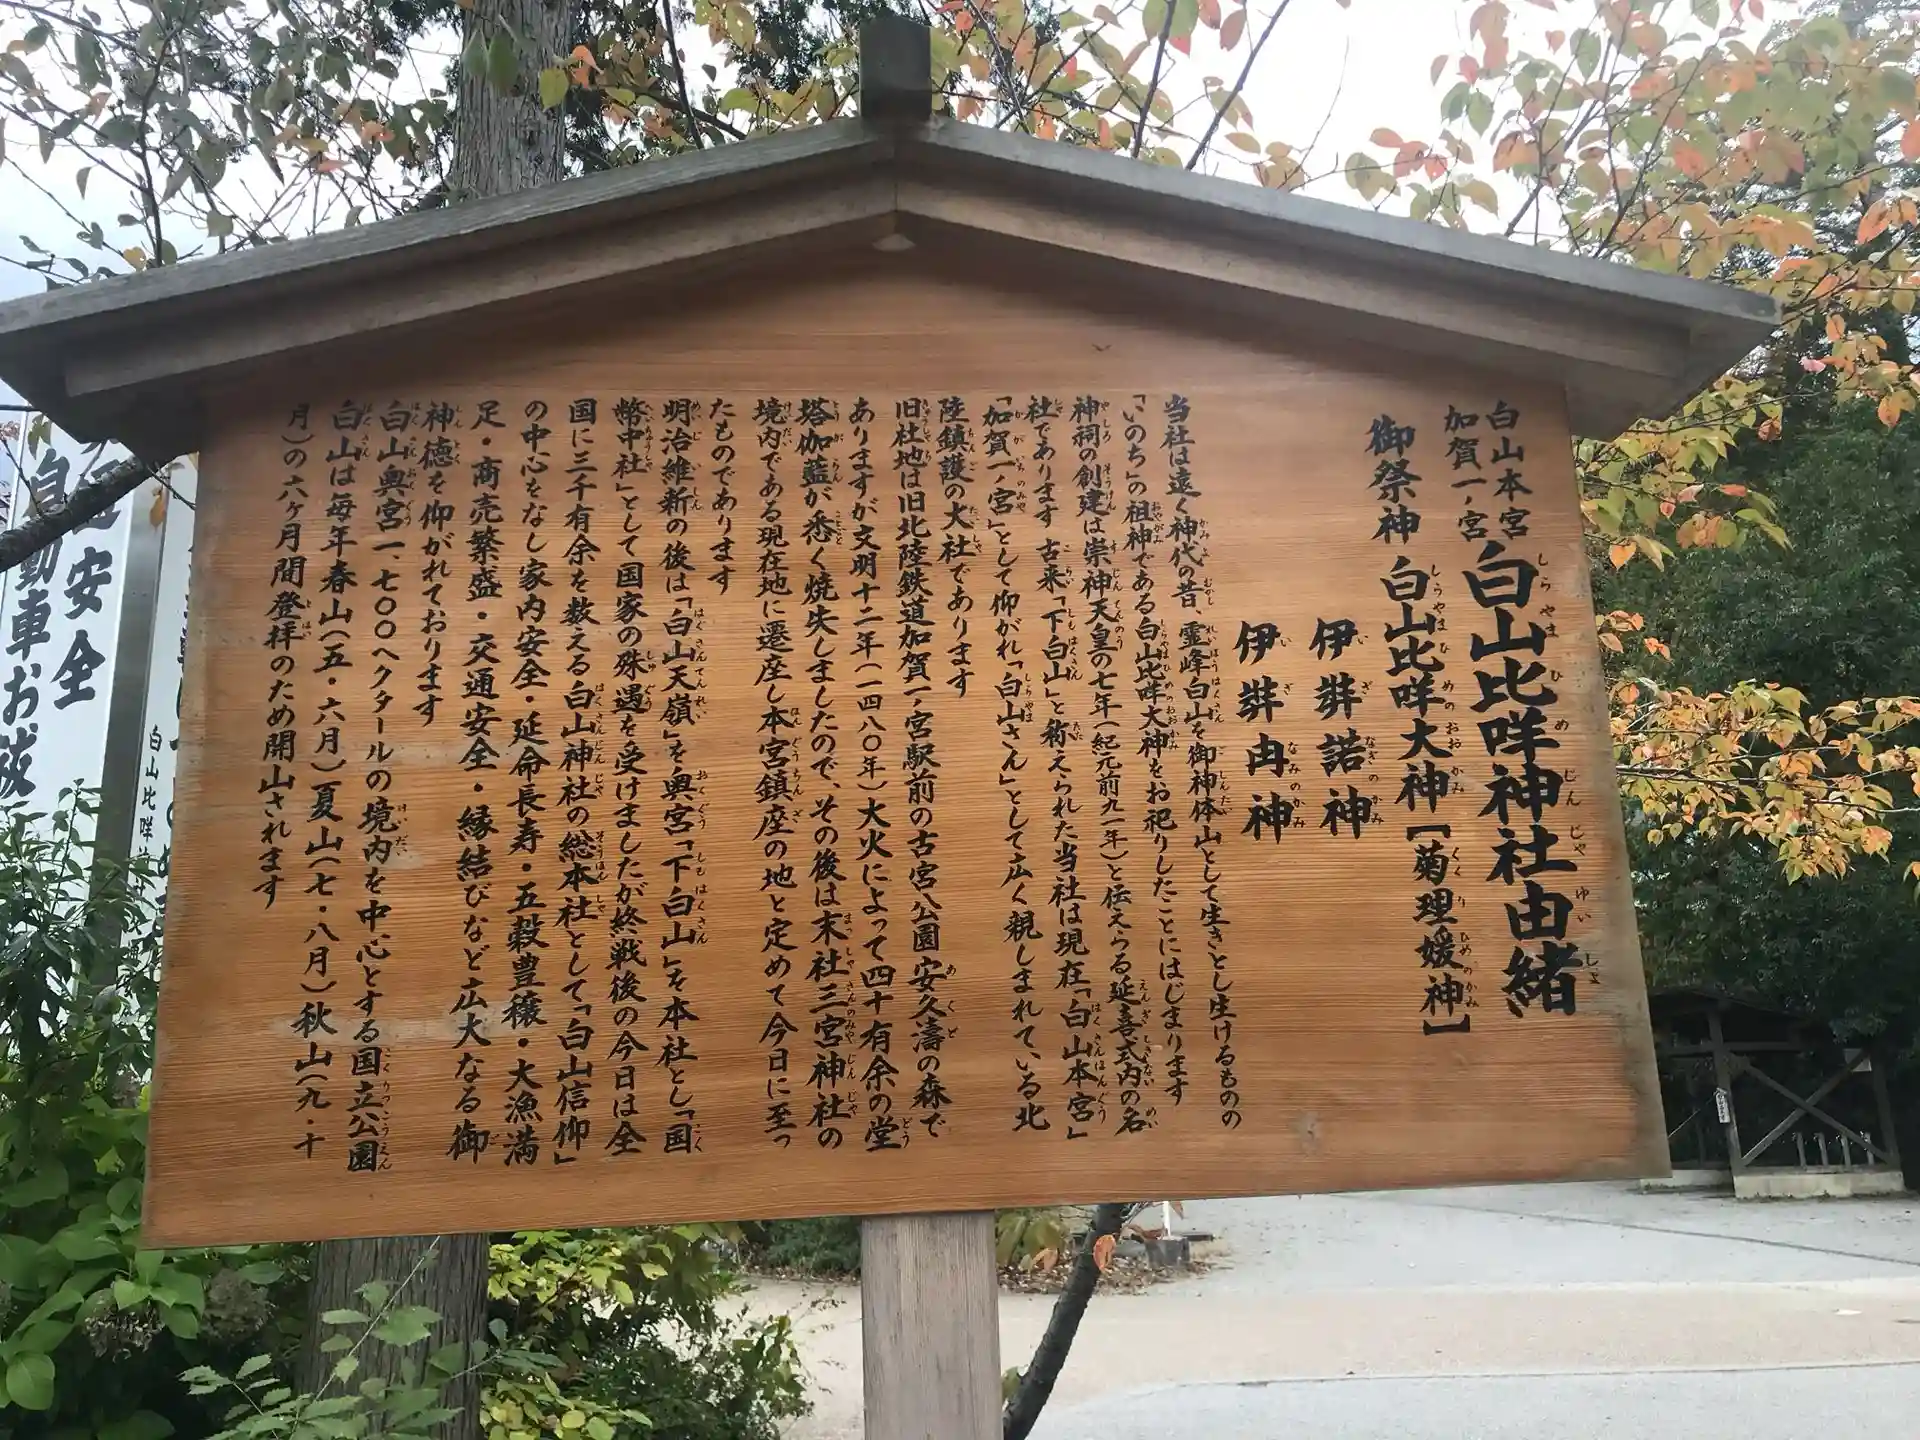 白山本宮
加賀一ノ宮
白山比咩神社由緒
御祭神 白山比咩大神【菊理媛神】
伊弉諾神
伊弉冉神
当社は遠く神代の昔、霊峰白山を御神体山として生きとし生けるものの
「いのち」の祖神である白山比咩大神をお祀りしたことにはじまります
神祠の創建は崇神天皇の七年（紀元前九一年）と伝えらる延喜式内の名
社であります 古来「下白山」と称えられた当社は現在「白山本宮」
「加賀一ノ宮」として仰がれ「白山さん」として広く親しまれている北
陸鎮護の大社であります
旧社地は旧北陸鉄道加賀一ノ宮駅前の古宮公園安久濤の森で
ありますが文明十二年（一四八〇年）大火によって四十有余の堂
塔伽藍が悉く焼失しましたので、その後は末社三宮神社の
境内である現在地に遷座し本宮鎮座の地と定めて今日に至っ
たものであります
明治維新の後は「白山天嶺」を奥宮「下白山」を本社とし「国
幣中社」として国家の殊遇を受けましたが終戦後の今日は全
国に三千有余を数える白山神社の総本社として「白山信仰」
の中心をなし家内安全・延命長寿・五穀豊穣・大漁満
足・商売繁盛・交通安全・縁結びなど広大なる御
神徳を仰がれております
白山奥宮一、七〇〇ヘクタールの境内を中心とする国立公園
白山は毎年春山（五・六月）夏山（七・八月）秋山（九・十
月）の六ヶ月間登拝のため開山されます
安全
自動車お祓
白山比咩